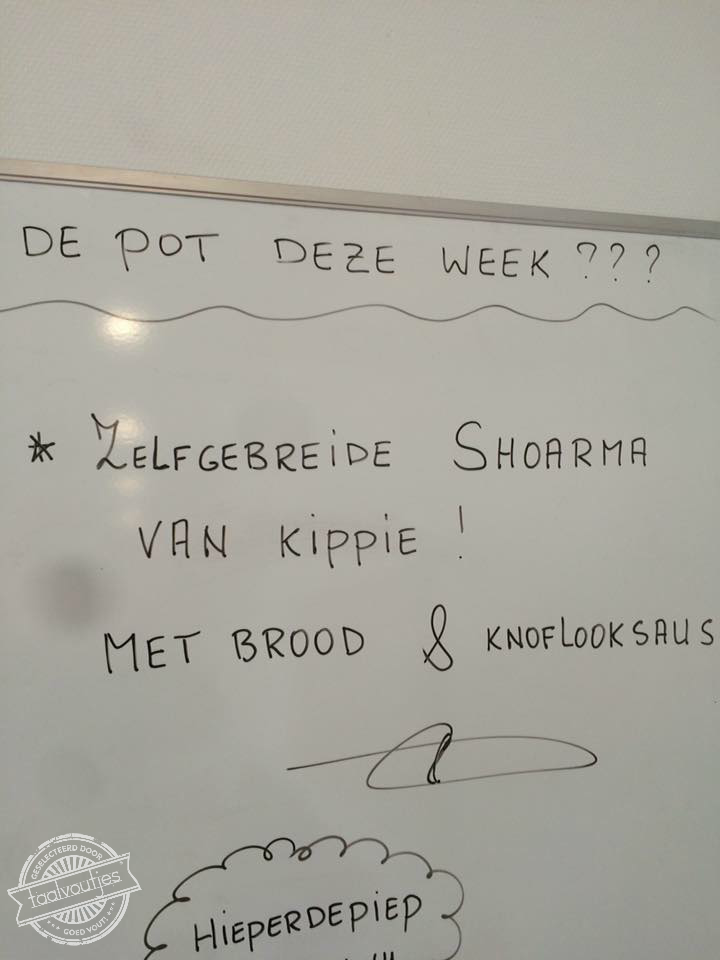 DE POT DEZE WEEK ???
* ZELFGEBREIDE SHOARMA
VAN KIPPIE !
MET BROOD & KNOFLOOKSAUS
HIEPERDEPIEP
!!!
GESELECTEERD DOOR
taalvoutjes
GOED VOUT!